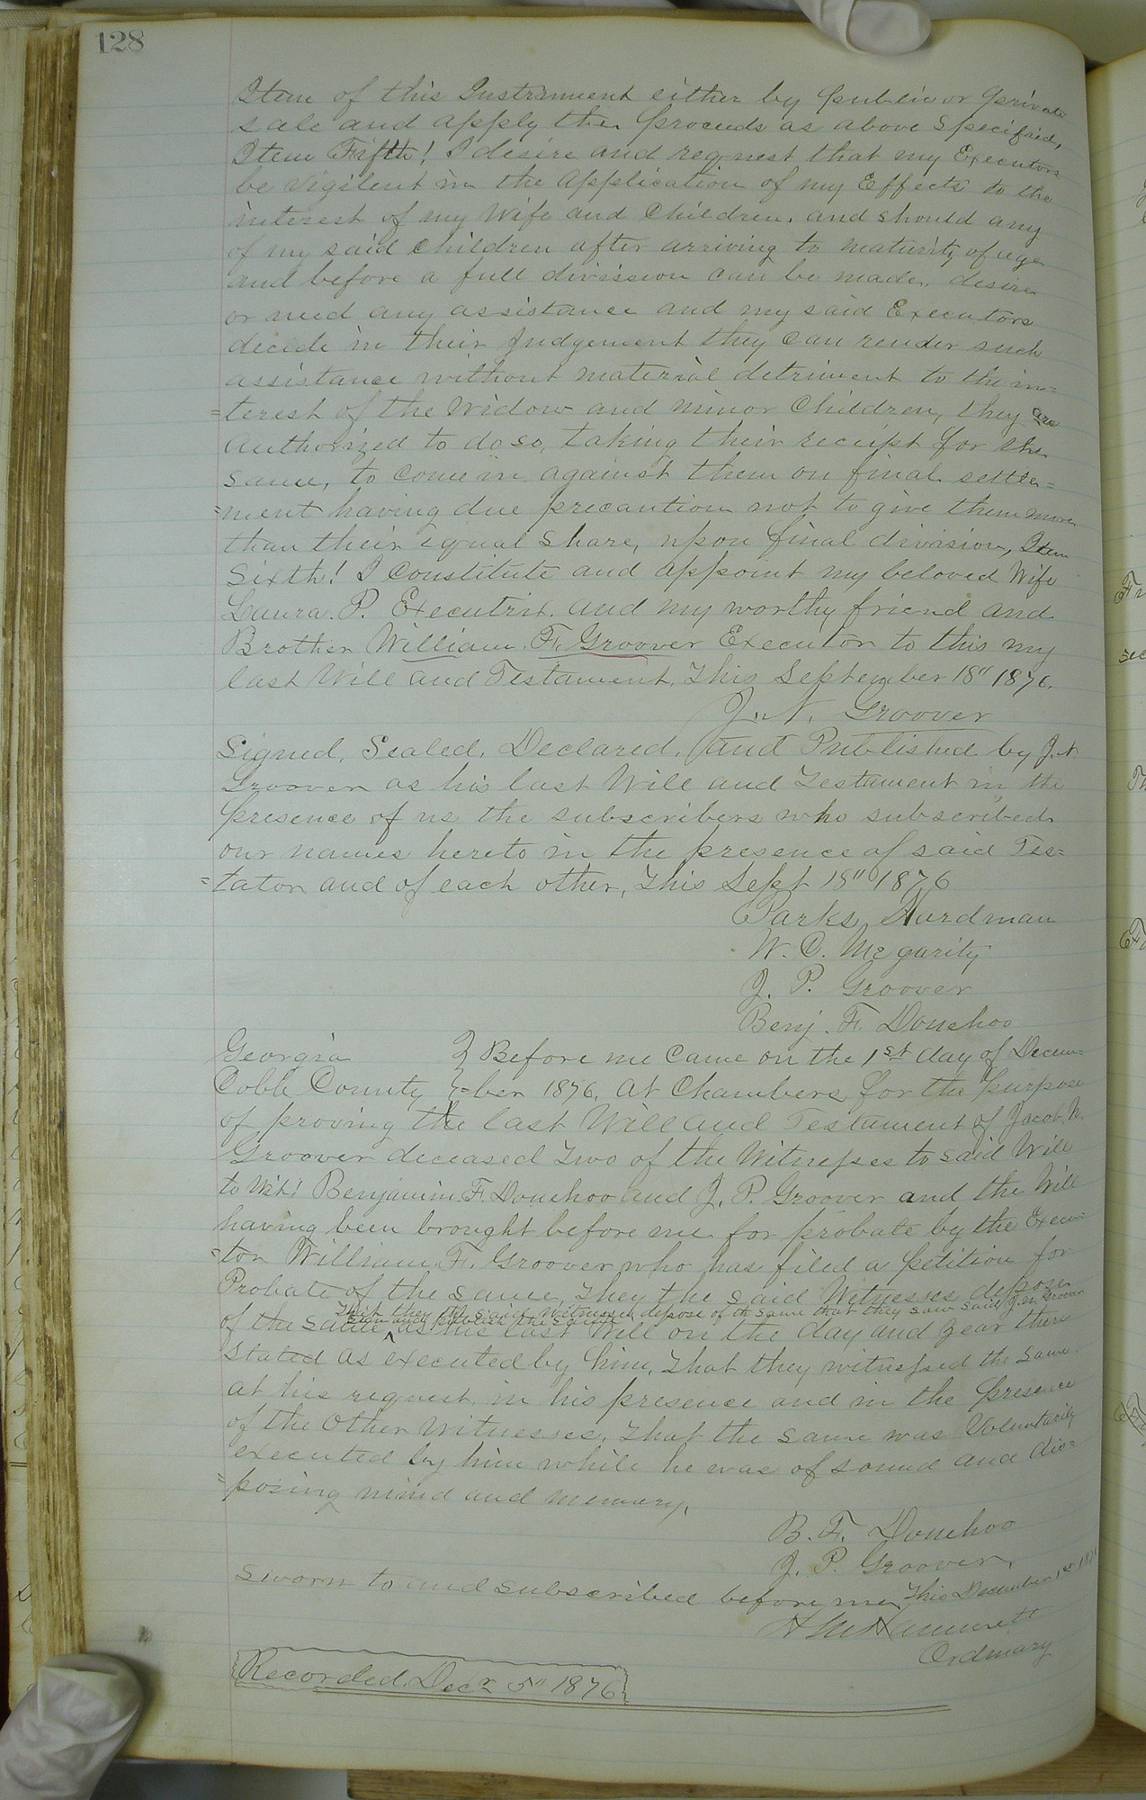 128
Item of this Instrument either by public or private
sale and apply the proceeds as above specified,
Item Fifth! I desire and request that my Executors
be vigilent in the application of my Effects to the
interest of my Wife and Children, and should any
of my said children after arriving to maturity of age
and before a full division can be made, desire
or need any assistance and my said Executors
decide in their Judgement they can render such
assistance without material detriment to the in=
=terest of the Widow and minor Children, they are
authorized to do so, taking their receipt for the
same, to come in against them on final settle=
=ment having due precaution not to give them more
than their equal share, upon final division, Item
Sixth! I Constitute and appoint my beloved Wife
Laura. P. Executrix. and my worthy friend and
Brother William. F. Groover Executor to this my
last Will and Testament, This September 18" 1876.
J. N. Groover
Signed, Sealed, Declared, and Published by J. N
Groover as his last Will and Testament in the
presence of us the subscribers who subscribed
our names hereto in the presence of said Tes=
=tator and of each other, This Sept 18" 1876
Parks Hardman
W. C. Mcgarity
J. P. Groover
Benj. F. Donehoo
Georgia } Before me Came on the 1st day of Decem=
Cobb County } =ber 1876, at Chambers for the purpose
of proving the last Will and Testament of Jacob. N.
Groover deceased Two of the Witnesses to said Will
to Wit! Benjamin. F. Donehoo and J. P. Groover and the Will
having been brought before me for probate by the Execu=
=tor William. F. Groover who has filed a petition for
Probate of the same, They the said Witnesses depose
That they the said witnesses depose of the same that they saw said J. N. Groover
sign and publish the same
of the same ^ as his last Will on the day and year there
stated as executed by him, That they witnessed the same
at his request in his presence and in the presence
of the Other Witnesses, That the same was Voluntarily
executed by him while he was of sound and dis=
=posing mind and memory,
B. F. Donehoo
J. P. Groover,
Sworn to and subscribed before me, This December 1st 1876
H M Hammett
Ordinary
Recorded Decr 5" 1876